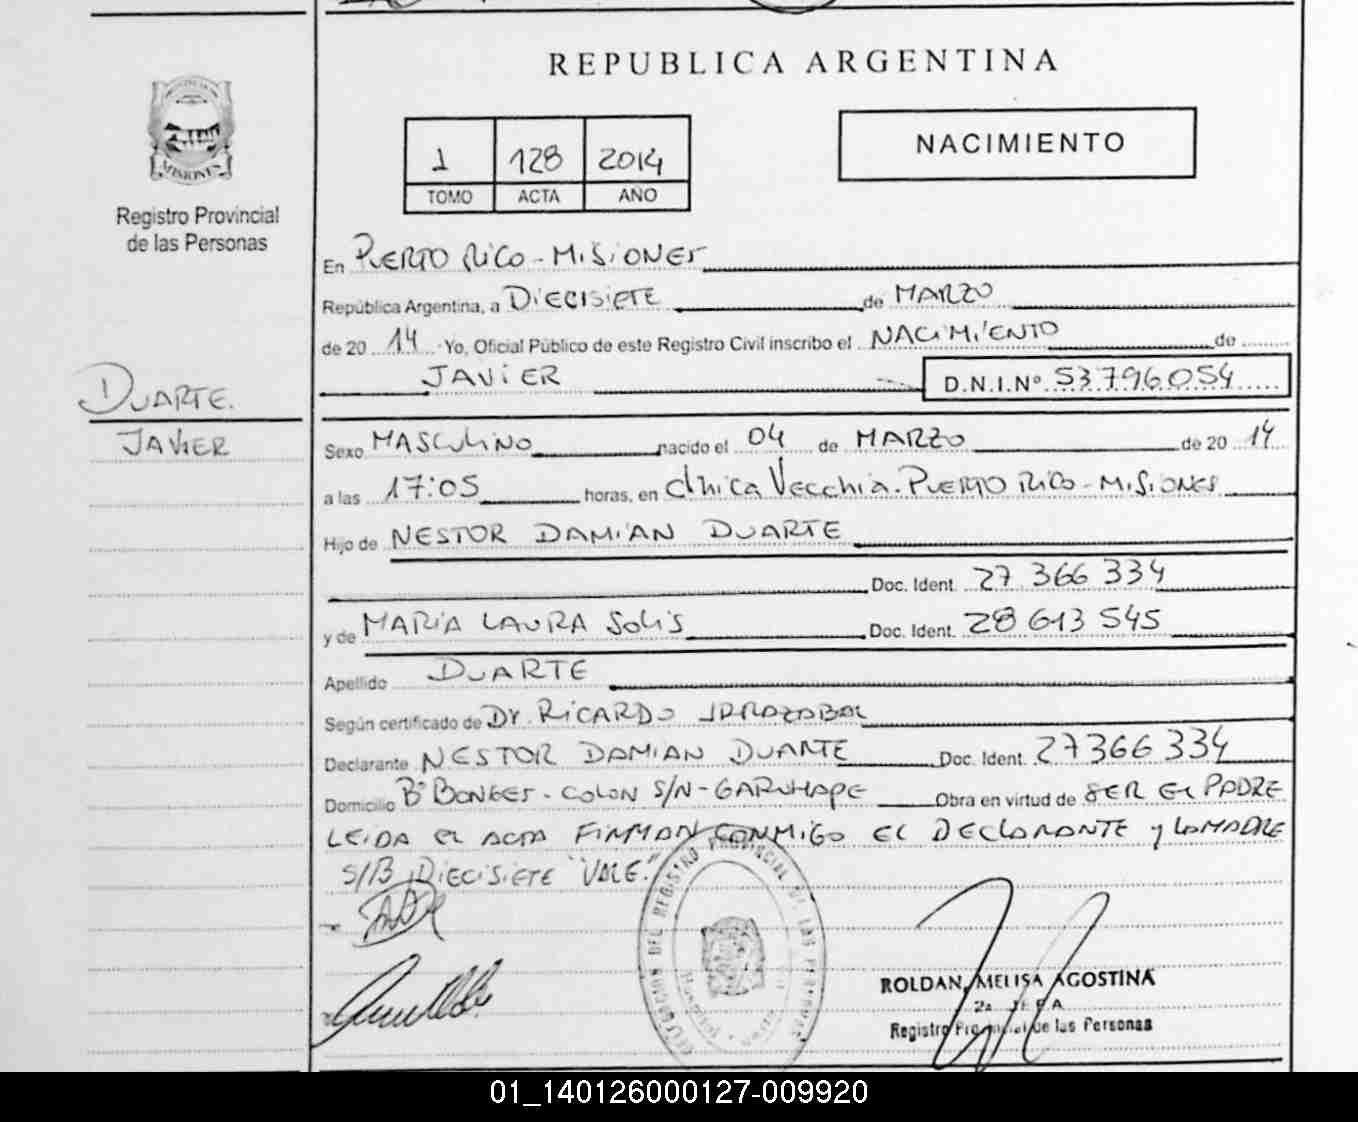 REPUBLICA ARGENTINA
1 128 2014
TOMO ACTA AÑO
NACIMIENTO
MISIONES
Registro Provincial
de las Personas
En PUERTO RICO - MISIONES
República Argentina, a DIECISIETE de MARZO
de 20 14 Yo, Oficial Público de este Registro Civil inscribo el NACIMIENTO de
JAVIER D.N.I.Nº 53796054
DUARTE.
JAVIER
Sexo MASCULINO nacido el 04 de MARZO de 20 14
a las 17:05 horas, en clínica Vecchia. PUERTO RICO - MISIONES
Hijo de NESTOR DAMIAN DUARTE
Doc. Ident. 27 366 334
y de MARIA LAURA SOLIS Doc. Ident. 28 613 545
Apellido DUARTE
Según certificado de Dr. RICARDO IRRAZABAL
Declarante NESTOR DAMIAN DUARTE Doc. Ident. 27366334
Domicilio Bº - COLON S/N - GARUHAPE Obra en virtud de SER EL PADRE
LEIDA EL ACTA FIRMAN CONMIGO EL DECLARANTE y LA MADRE
S/B DIECISIETE "VALE."
DELEGACION DEL REGISTRO PROVINCIAL DE LAS PERSONAS
ROLDAN, MELISA AGOSTINA
2a JEFA
Registro Provincial de las Personas
01_140126000127-009920